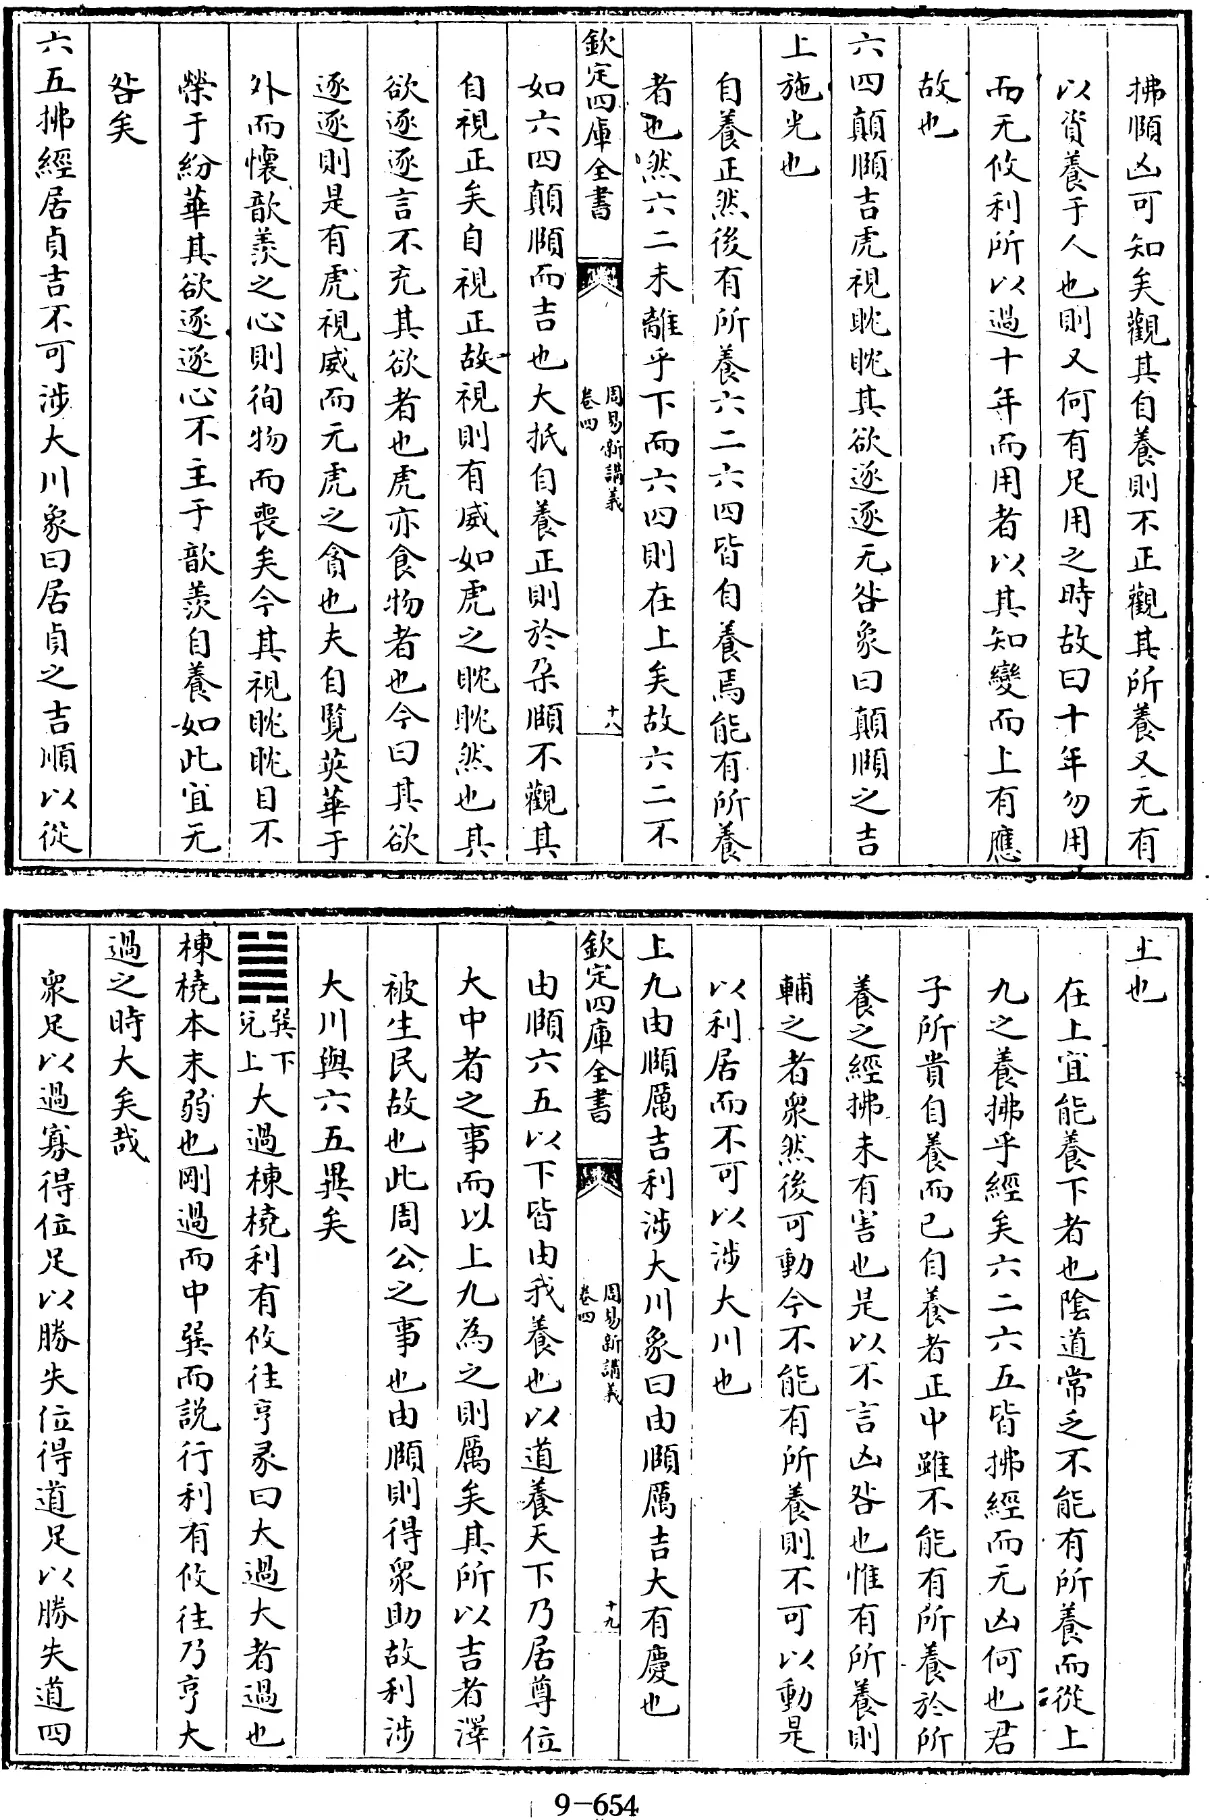 拂頤凶可知矣觀其自養則不正觀其所養又无有
以資養于人也則又何有足用之時故曰十年勿用
而无攸利所以過十年而用者以其知變而上有應
故也
六四顛頤吉虎視眈眈其欲逐逐无咎象曰顛頤之吉
上施光也
自養正然後有所養六二六四皆自養焉能有所養
者也然六二未離乎下而六四則在上矣故六二不
欽定四庫全書
周易新講義
卷四
十八
如六四顛頤而吉也大抵自養正則於朶頤不觀其
自視正矣自視正故視則有威如虎之眈眈然也其
欲逐逐言不充其欲者也虎亦食物者也今曰其欲
逐逐則是有虎視威而无虎之貪也夫自覽英華于
外而懷歆羨之心則徇物而喪矣今其視眈眈目不
榮于紛華其欲逐逐心不主于歆羨自養如此宜无
咎矣
六五拂經居貞吉不可涉大川象曰居貞之吉順以從
上也
在上宜能養下者也陰道常乏不能有所養而從上
九之養拂乎經矣六二六五皆拂經而无凶何也君
子所貴自養而已自養者正中雖不能有所養於所
養之經拂未有害也是以不言凶咎也惟有所養則
輔之者衆然後可動今不能有所養則不可以動是
以利居而不可以涉大川也
上九由頤厲吉利涉大川象曰由頤厲吉大有慶也
欽定四庫全書
周易新講義
卷四
十九
由頤六五以下皆由我養也以道養天下乃居尊位
大中者之事而以上九為之則厲矣其所以吉者澤
被生民故也此周公之事也由頤則得衆助故利涉
大川與六五異矣
巽下
兌上
大過棟橈利有攸往亨彖曰大過大者過也
棟橈本末弱也剛過而中巽而說行利有攸往乃亨大
過之時大矣哉
衆足以過寡得位足以勝失位得道足以勝失道四
9-654